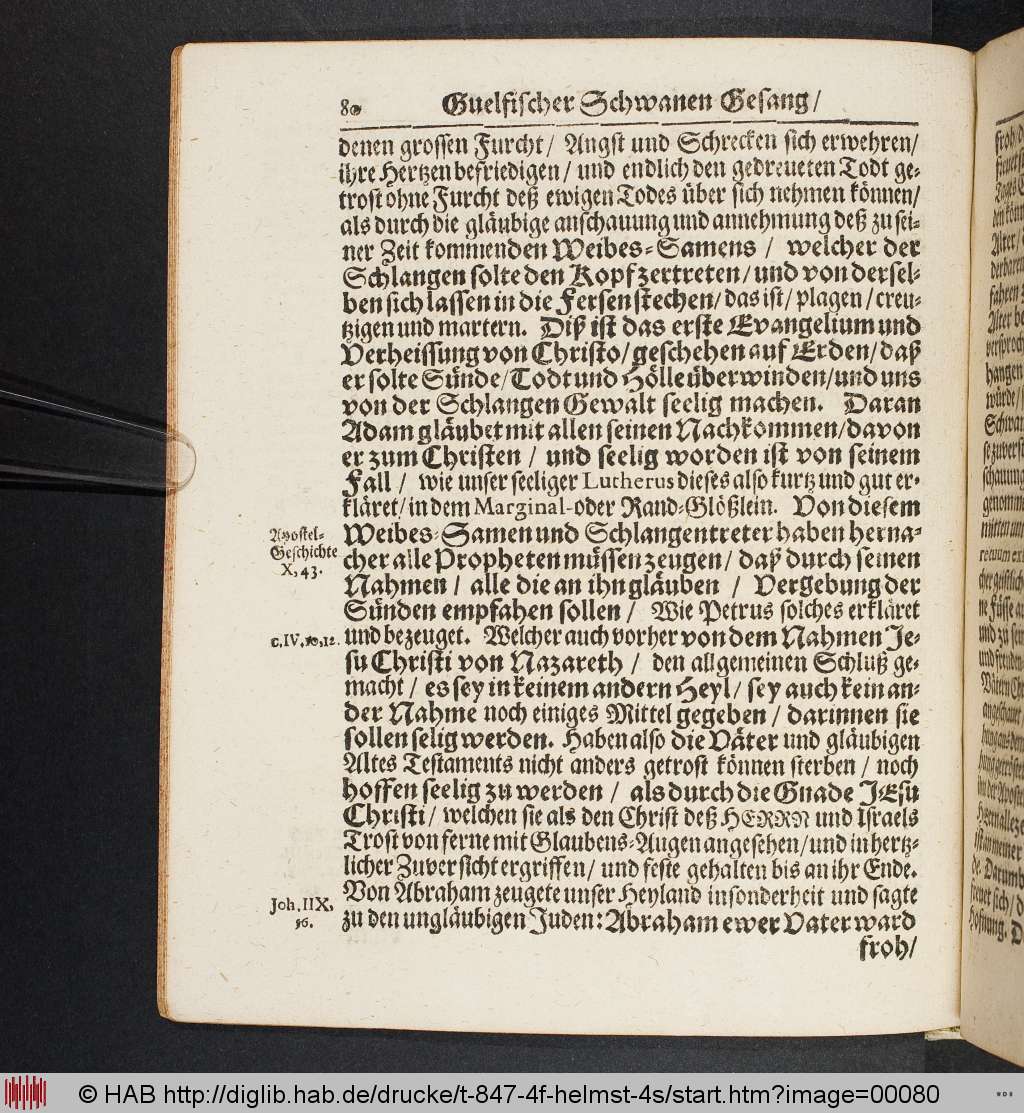 80 Guelfischer Schwanen Gesang/
denen grossen Furcht / Angst und Schrecken sich erwehren/
ihre Hertzen befriedigen / und endlich den gedreueten Todt ge-
trost ohne Furcht deß ewigen Todes über sich nehmen können/
als durch die gläubige anschauung und annehmung deß zu sei-
ner Zeit kommenden Weibes-Samens / welcher der
Schlangen solte den Kopf zertreten / und von dersel-
ben sich lassen in die Fersen stechen / das ist / plagen / creu-
tzigen und martern. Diß ist das erste Evangelium und
Verheissung von Christo / geschehen auf Erden / daß
er solte Sünde / Todt und Hölle überwinden / und uns
von der Schlangen Gewalt seelig machen. Daran
Adam gläubet mit allen seinen Nachkommen / davon
er zum Christen / und seelig worden ist von seinem
Fall / wie unser seeliger Lutherus dieses also kurtz und gut er-
kläret / in dem Marginal-oder Rand-Glößlein. Von diesem
Apostel-
Geschichte
X, 43.
Weibes-Samen und Schlangentreter haben herna-
cher alle Propheten müssen zeugen / daß durch seinen
Nahmen / alle die an ihn gläuben / Vergebung der
Sünden empfahen sollen / Wie Petrus solches erkläret
c. IV, 10, 12.
und bezeuget. Welcher auch vorher von dem Nahmen Je-
su Christi von Nazareth / den allgemeinen Schluß ge-
macht / es sey in keinem andern Heyl / sey auch kein an-
der Nahme noch einiges Mittel gegeben / darinnen sie
sollen selig werden. Haben also die Väter und gläubigen
Altes Testaments nicht anders getrost können sterben / noch
hoffen seelig zu werden / als durch die Gnade JEsu
Christi / welchen sie als den Christ deß HERRN und Israels
Trost von ferne mit Glaubens-Augen angesehen / und in hertz-
licher Zuversicht ergriffen / und feste gehalten bis an ihr Ende.
Joh. IIX,
56.
Von Abraham zeugete unser Heyland insonderheit und sagte
zu den ungläubigen Juden: Abraham ewer Vater ward
froh /
© HAB http://diglib.hab.de/drucke/t-847-4f-helmst-4s/start.htm?image=00080